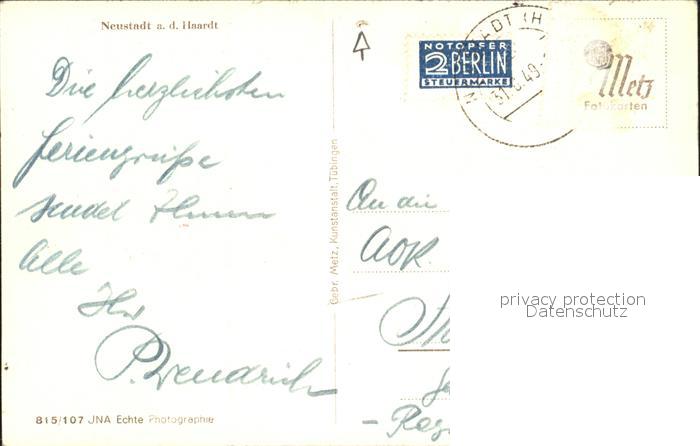 Neustadt a. d. Haardt
Die herzlichsten
Feriengrüße
sendet Ihnen
Alle
Ihr
P. Wendrich
815/107 JNA Echte Photographie
Gebr. Metz, Kunstanstalt, Tübingen
NOTOPFER
2 BERLIN
STEUERMARKE
31. 49
Metz
Fotokarten
An die
AOK.
privacy protection
Datenschutz